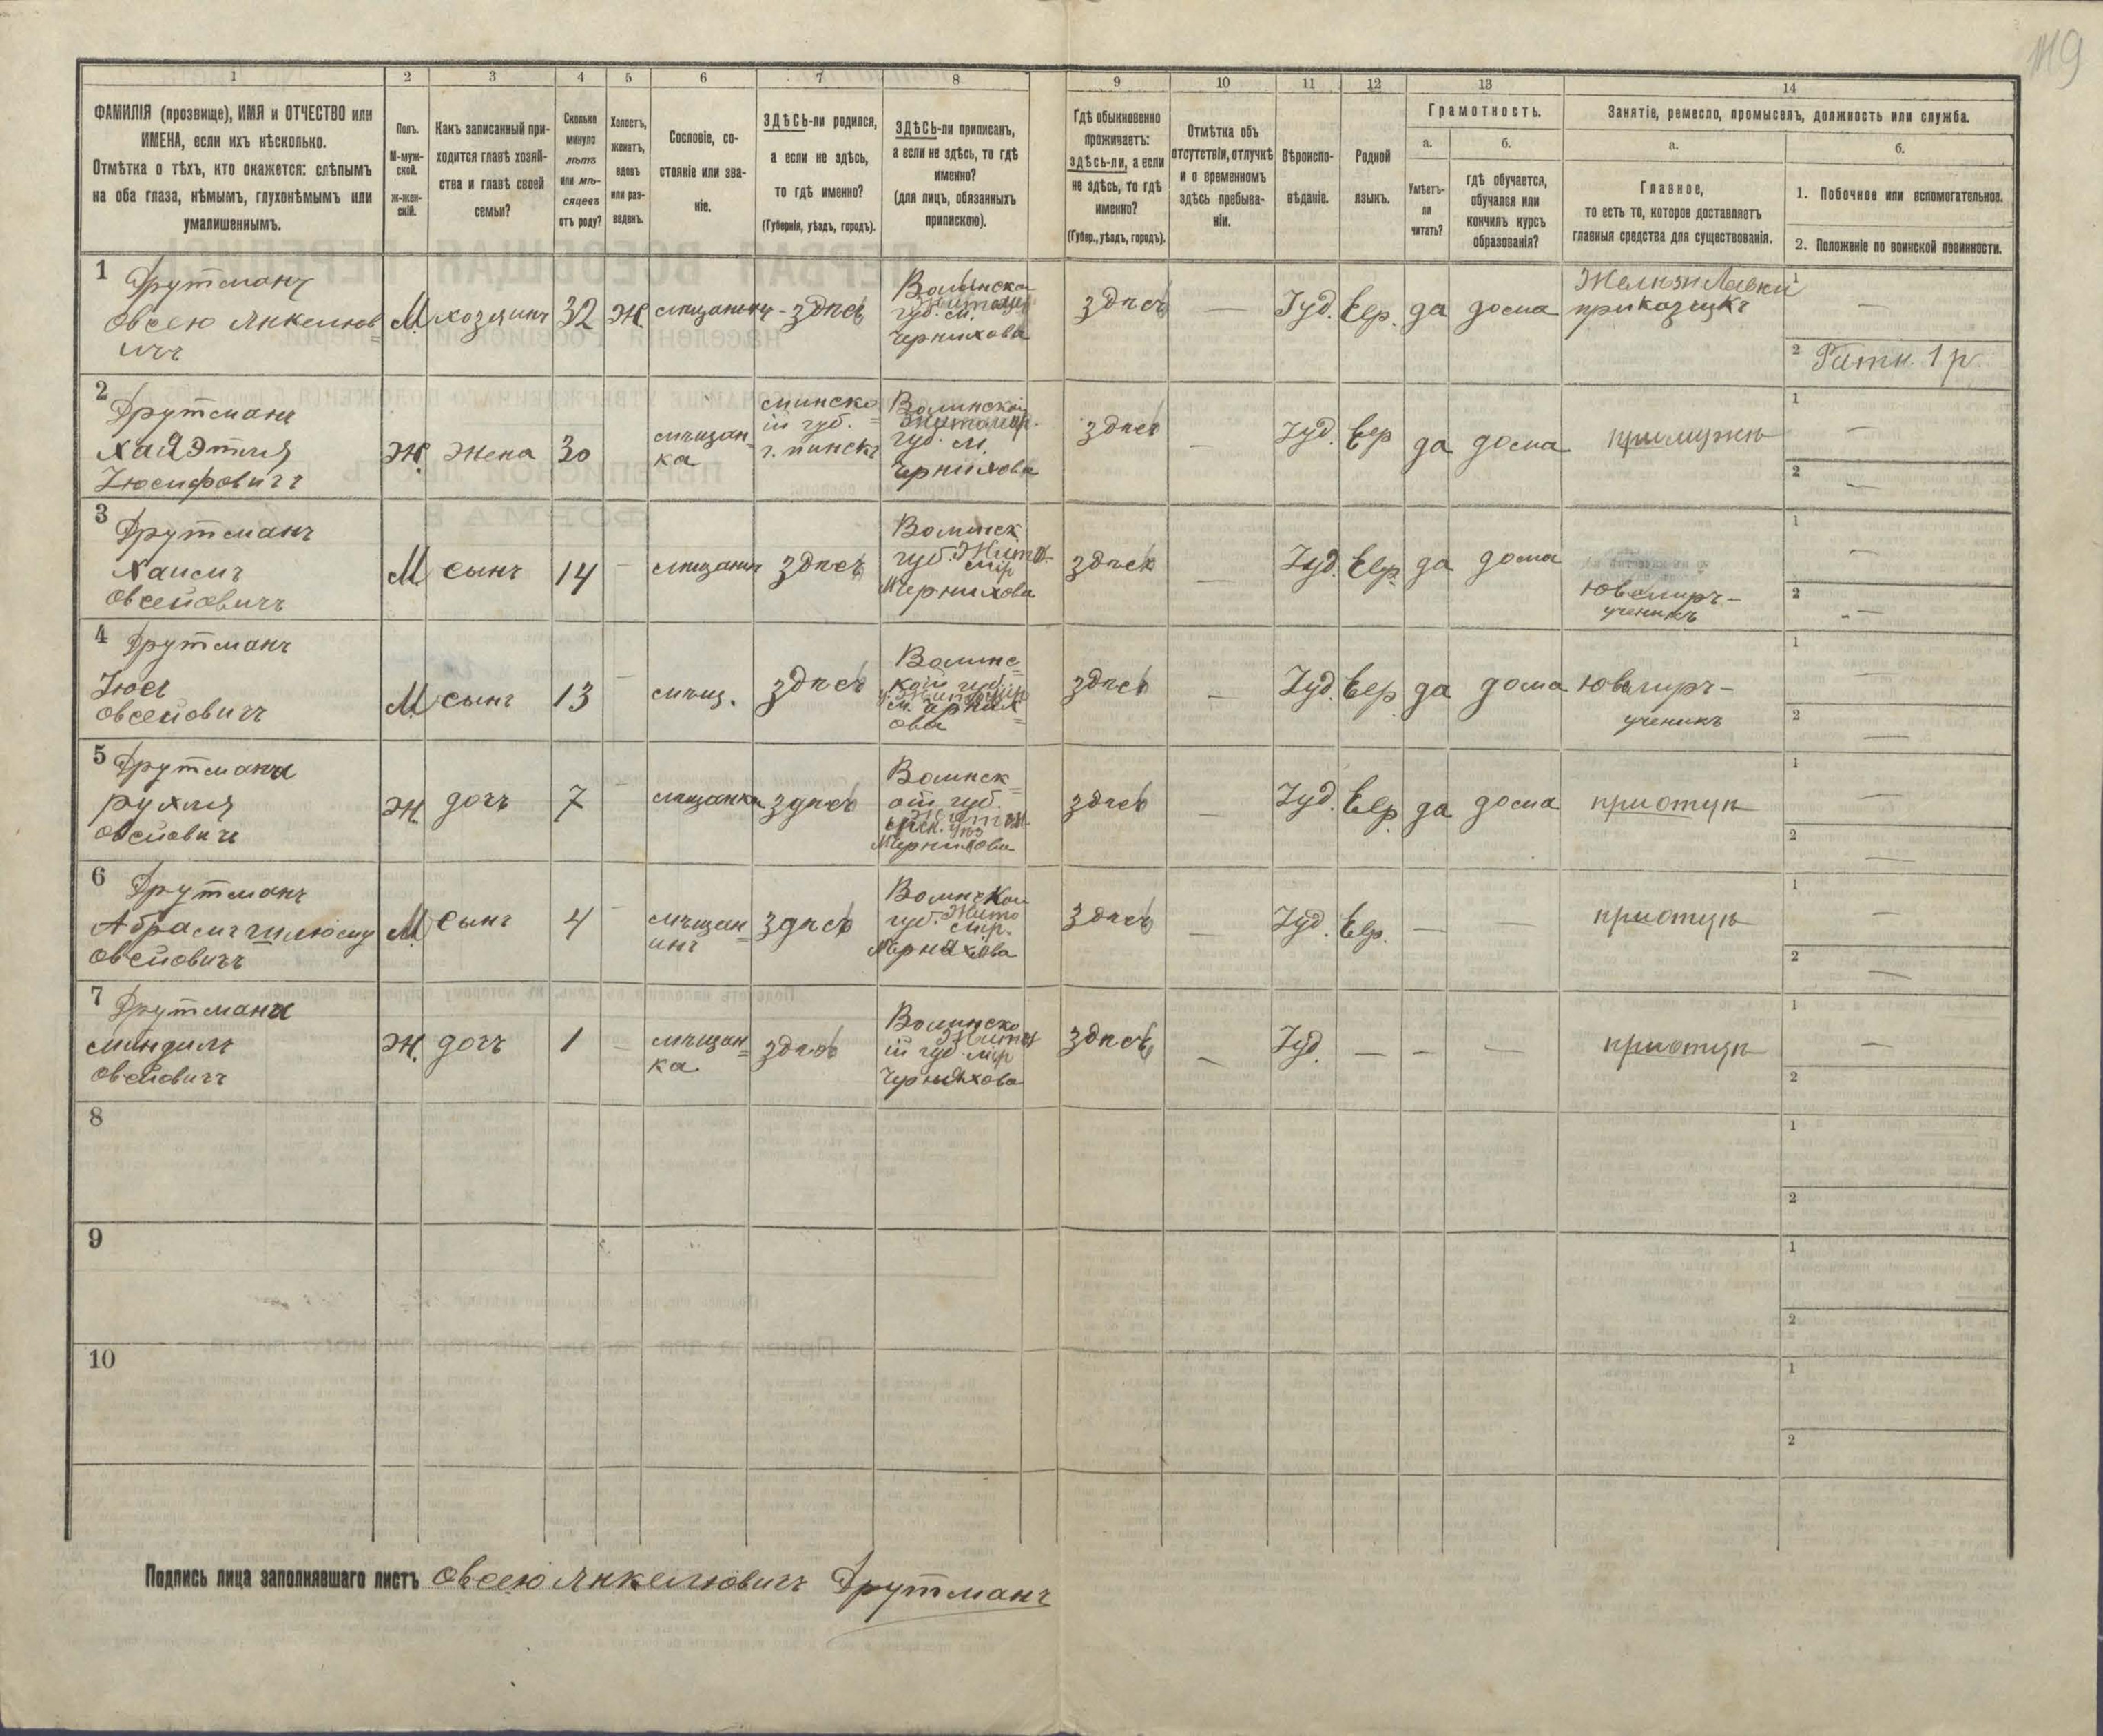 119
1 2 3 4 5 6 7 8 9 10 11 12 13 14
ФАМИЛІЯ (прозвище), ИМЯ и ОТЧЕСТВО или
ИМЕНА, если ихъ нѣсколько.
Отмѣтка о тѣхъ, кто окажется: слѣпымъ
на оба глаза, нѣмымъ, глухонѣмымъ или
умалишеннымъ.
Полъ.
М-муж-
ской.
Ж-жен-
скій.
Какъ записанный при-
ходится главѣ хозяй-
ства и главѣ своей
семьи?
Сколько
минуло
лѣтъ
или мѣ-
сяцевъ
отъ роду?
Холостъ,
женатъ,
вдовъ
или раз-
веденъ.
Сословіе, со-
стояніе или зва-
ніе.
ЗДѢСЬ-ли родился,
а если не здѣсь,
то гдѣ именно?
(Губернія, уѣздъ, городъ).
ЗДѢСЬ-ли приписанъ,
а если не здѣсь, то гдѣ
именно?
(для лицъ, обязанныхъ
припискою).
Гдѣ обыкновенно
проживаетъ:
здѣсь-ли, а если
не здѣсь, то гдѣ
именно?
(Губер., уѣздъ, городъ).
Отмѣтка объ
отсутствіи, отлучкѣ
и о временномъ
здѣсь пребыва-
ніи.
Вѣроиспо-
вѣданіе.
Родной
языкъ.
Грамотность.
а.
Умѣетъ-
ли
читать?
б.
гдѣ обучается,
обучался или
кончилъ курсъ
образованія?
Занятіе, ремесло, промыселъ, должность или служба.
а.
Главное,
то есть то, которое доставляетъ
главныя средства для существованія.
б.
1. Побочное или вспомогательное.
2. Положеніе по воинской повинности.
1 Друтманъ
Овсею Янкелюв
ичъ
М хозяинъ 32 Ж. мѣщанинъ - здпсь
Волынско
Житомир
губ. м.
Черняхова
здпсь — Іуд. Евр. да дома
приказщикъ
1 —
2 Ратн. 1 р.
2 Друтмана
Хая Этля
Іюсифовичъ
Ж. жена 30
мѣщан=
ка
минско=
ій губ.
г. пинскъ
Волинской
Житомир.
губ. м.
Черняхова
здпсь — Іуд. Евр да дома примужѣ
1 —
2 —
3 Друтманъ
Хаимъ
Овсейовичъ
М сынъ 14 — мѣщанин здпсь
Волинск
губ. Жито
мир
Черняхова
здпсь — Іуд. Евр. да дома
ювелиръ-
ученикъ
1 —
2 —
4 Друтманъ
Овсейовичъ
М сынъ 13 — мѣщ. здпсь
Волинс=
кой губ.
здпсь — Іуд. Евр. да дома ювелиръ-
ученикъ
1 —
2 —
5 Друтмана
Рухля
Овсейовичъ
Ж. дочъ 7 — мѣщанка здпсь
Волинск=
ой губ.
Черняхова
здпсь — Іуд. Евр. да дома приотцѣ
1 —
2 —
6 Друтманъ
Овсейовичъ
М сынъ 4 —
мѣщан=
инъ
здпсь
Волинской
губ. Жито
мир.
Черняхова
здпсь — Іуд. Евр. — — приотцѣ
1 —
2 —
7 Друтмана
миндиль
Овсейовичъ
Ж. дочъ 1 —
мѣщан=
ка
здпсь
Волинско
Жито
ій губ. мир
Черняхова
здпсь — Іуд. — — — приотцѣ
1 —
2
8
1
2
9
1
2
10
1
2
Подпись лица заполнявшаго листъ Овсею Янкелювичъ Друтманъ